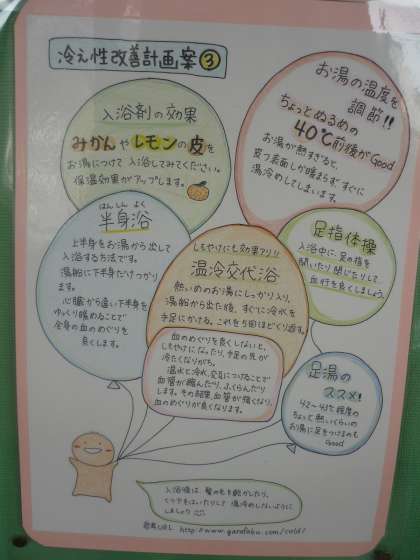 冷え性改善計画案③
お湯の温度を
調節!!
ちょっとぬるめの
40℃前後がGood
お湯が熱すぎると、
皮フ表面しか暖まらず、すぐに
湯冷めしてしまいます。
入浴剤の効果
みかんやレモンの皮を
お湯につけて入浴してみてください。
保温効果がアップします。
はん しん よく
半身浴
上半身をお湯から出して
入浴する方法です。
湯船に下半身だけつかり
ます。
心臓から遠い下半身を
ゆっくり暖めることで
全身の血のめぐりを
良くします。
しもやけにも効果アリ!!
温冷交代浴
熱いめのお湯にしっかり入り、
湯船から出た後、すぐに冷水を
手足にかける。これを5回ほどくり返す。
血のめぐりを良くしないと、
しもやけになったり、手足の先が
冷たくなりがち。
温水と冷水、交互につけることで
血管が縮んだり、ふくらんだり
します。その結果、血管が強くなり、
血のめぐりが良くなります。
足指体操
入浴中に、足の指を
開いたり閉じたりして、
血行を良くしましょう。
足湯の
ススメ!
42~43℃程度の
ちょっと熱いくらいの
お湯に足をつけるのも
Good
入浴後は、髪の毛を乾かしたり、
くつ下をはいたりして 湯冷めしないように
しましょう
参考URL http://www.garafubu.com/cold/